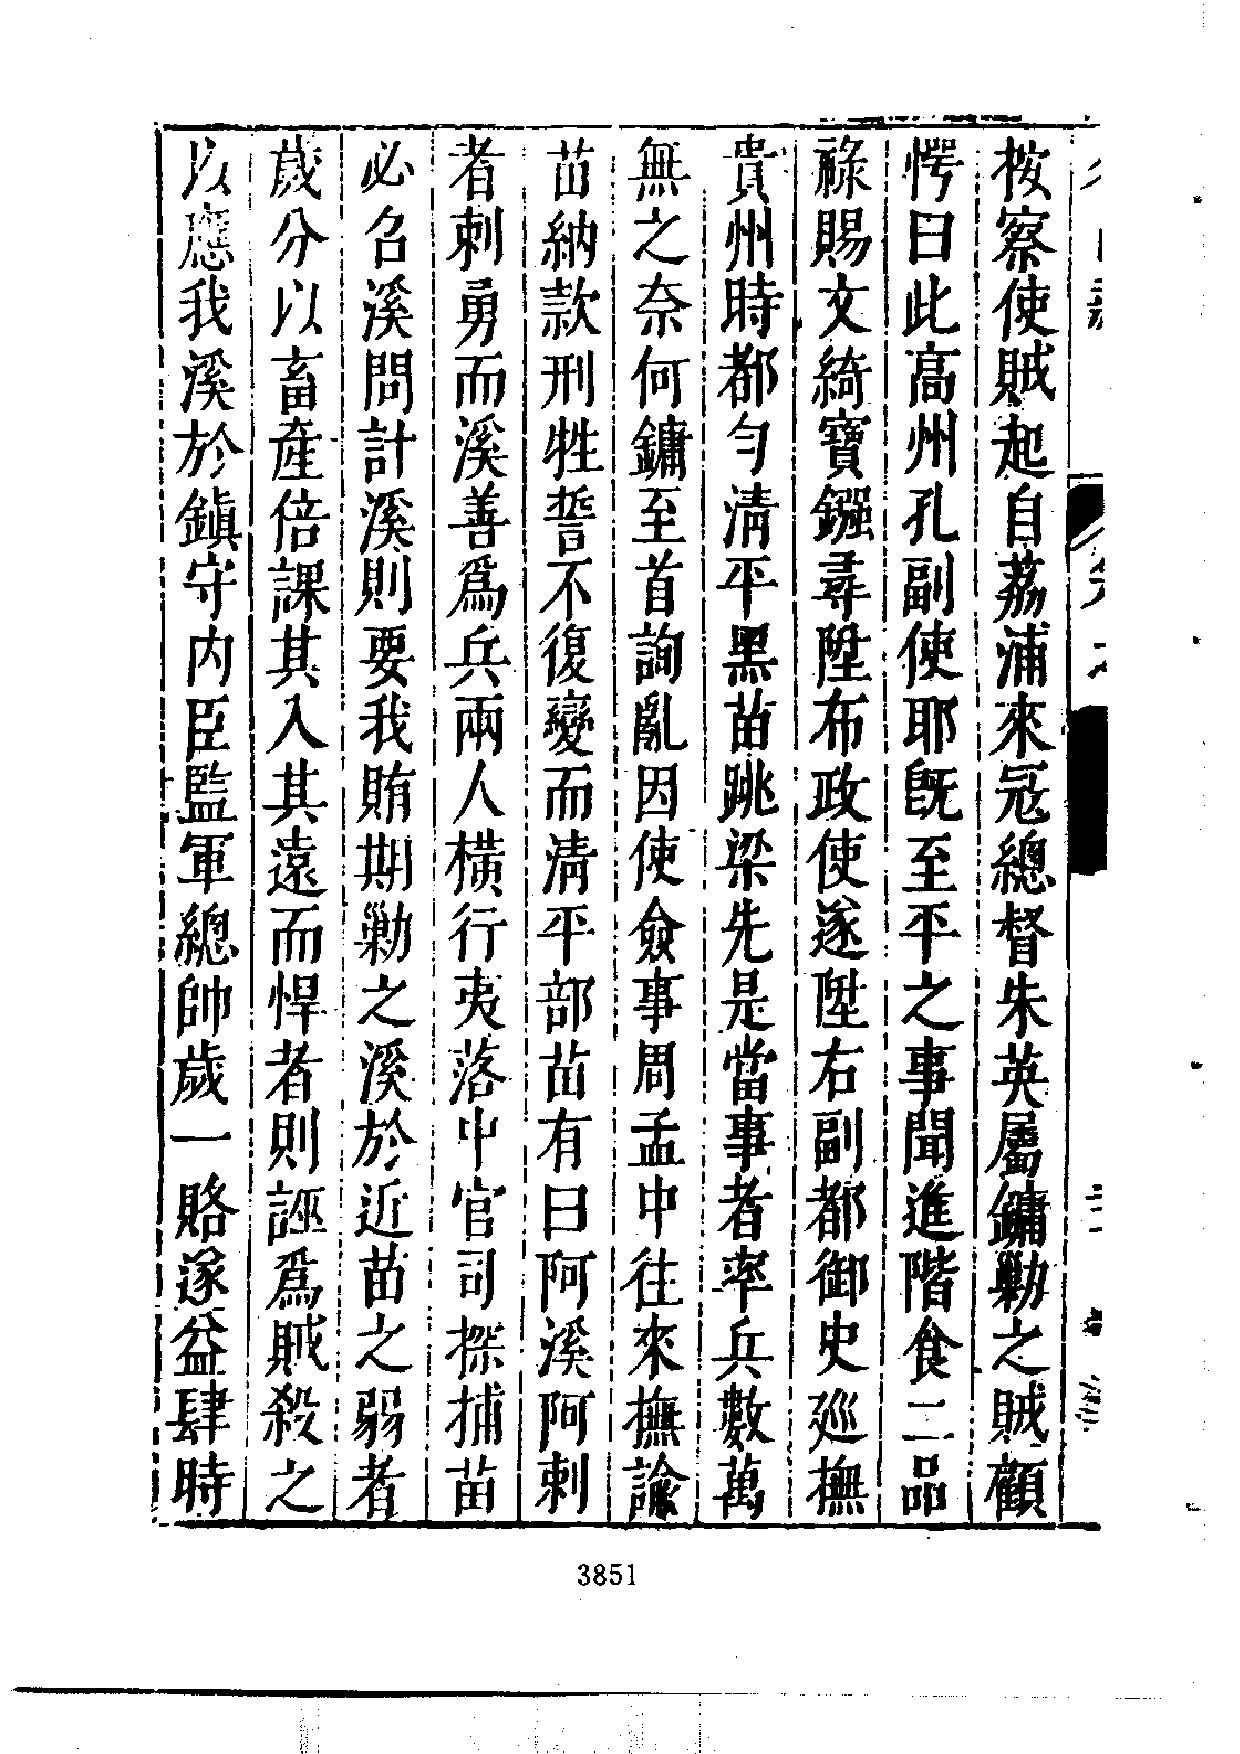 按察使賊起自荔浦來冦總督朱英屬鏞勦之賊顧
愕曰此高州孔副使耶既至平之事聞進階食二品
祿賜文綺寶鏹尋陞布政使遂陞右副都御史廵撫
貴州時都勻清平黑苗跳梁先是當事者率兵數萬
無之奈何鏞至首詢亂因使僉事周孟中往來撫諭
苗納款刑牲誓不復變而清平部苗有曰阿溪阿剌
者剌勇而溪善爲兵兩人橫行夷落中官司探捕苗
必名溪問計溪則要我賄期勦之溪於近苗之弱者
歲分以畜產倍課其入其遠而悍者則誣爲賊殺之
以應我溪於鎮守内臣監軍總帥歲一賂遂益肆時
3851